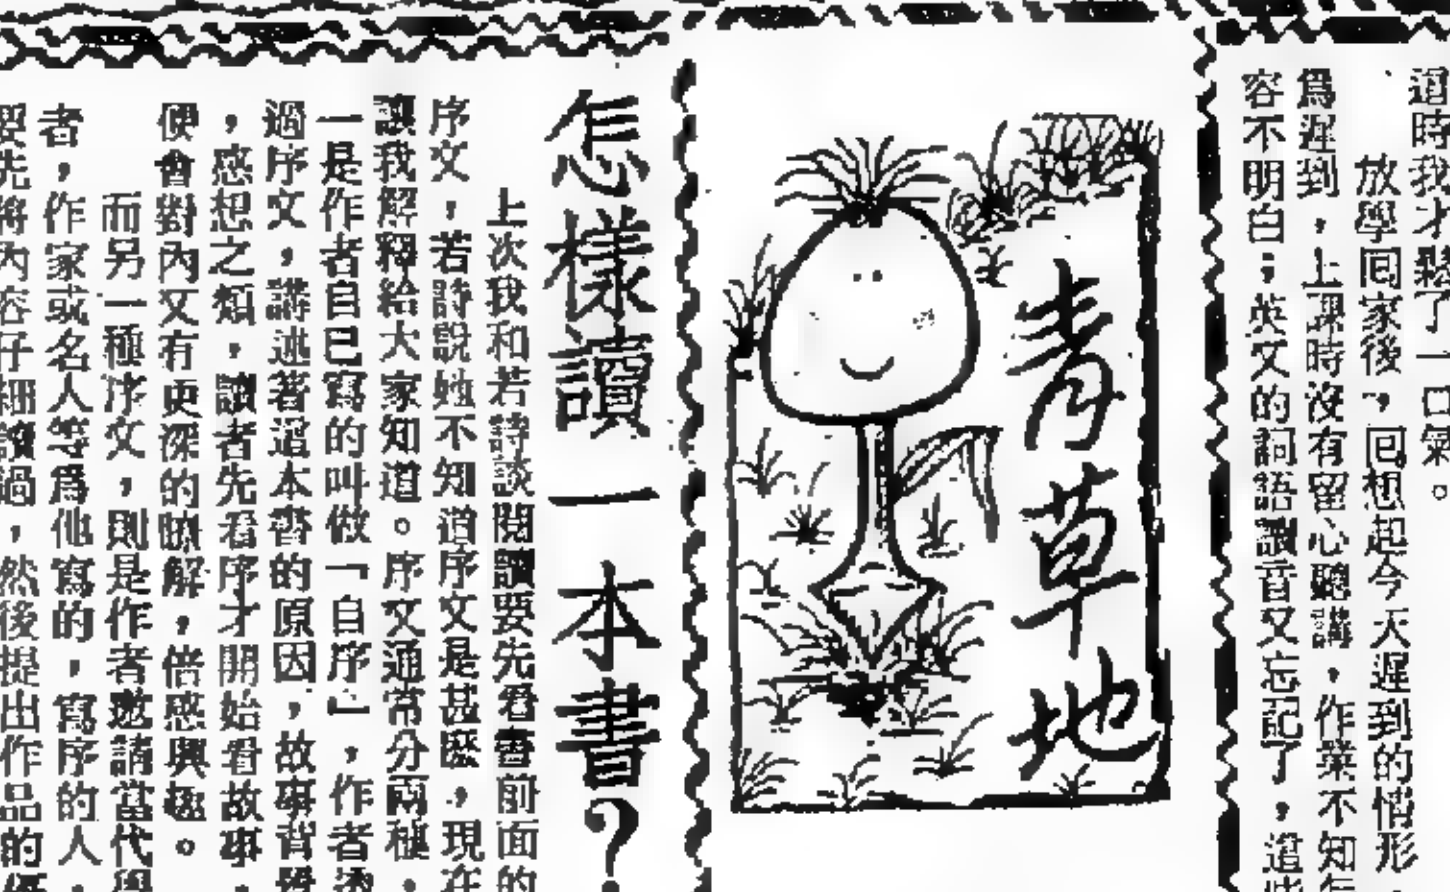 這時我才鬆了一口氣。
放學囘家後，囘想起今天遲到的情形，
爲遲到，上課時沒有留心聽講，作業不知怎
容不明白；英文的詞語讀音又忘記了，這些
青草地
怎樣讀一本書？
上次我和若詩談閱讀要先看書前面的
序文，若詩說她不知道序文是甚麽，現在
讓我解釋給大家知道。序文通常分兩種，
一是作者自己寫的叫做「自序」，作者透
過序文，講述著這本書的原因，故事背景
，感想之類，讀者先看序才開始看故事，
便會對內文有更深的瞭解，倍感興趣。
而另一種序文，則是作者邀請當代學
者，作家或名人等爲他寫的，寫序的人，
要先將內容仔細讀過，然後提出作品的優